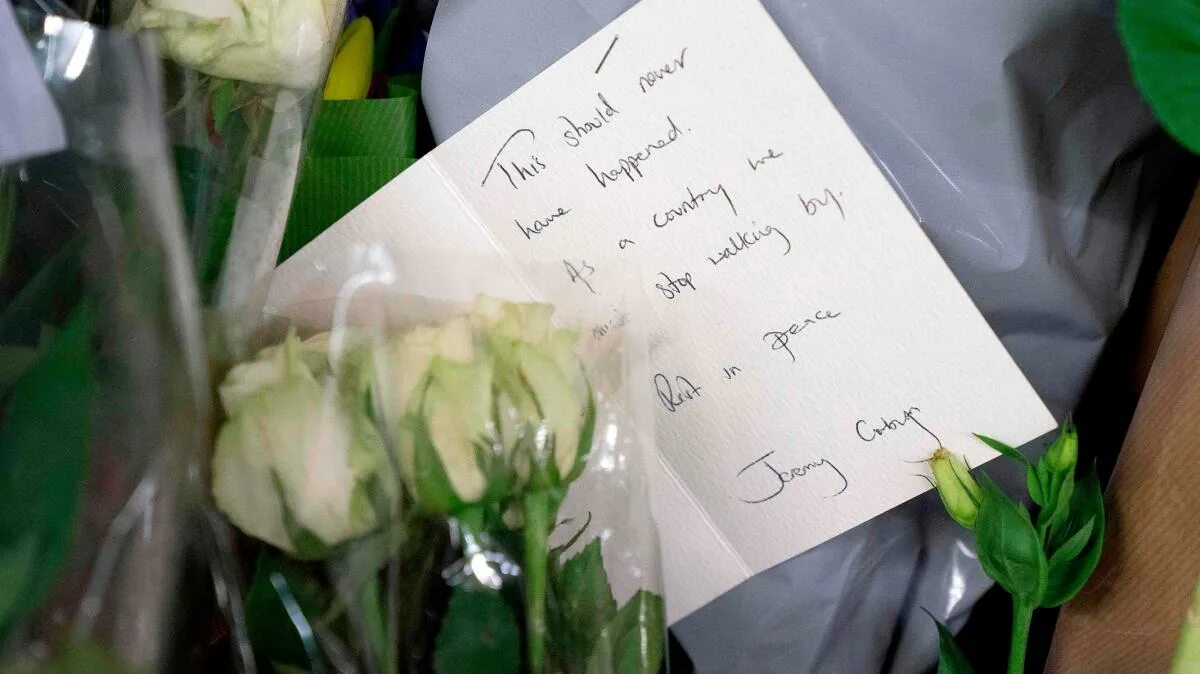 This should never
have happened.
As a country we
must stop walking by.
Rest in peace
Jeremy Corbyn